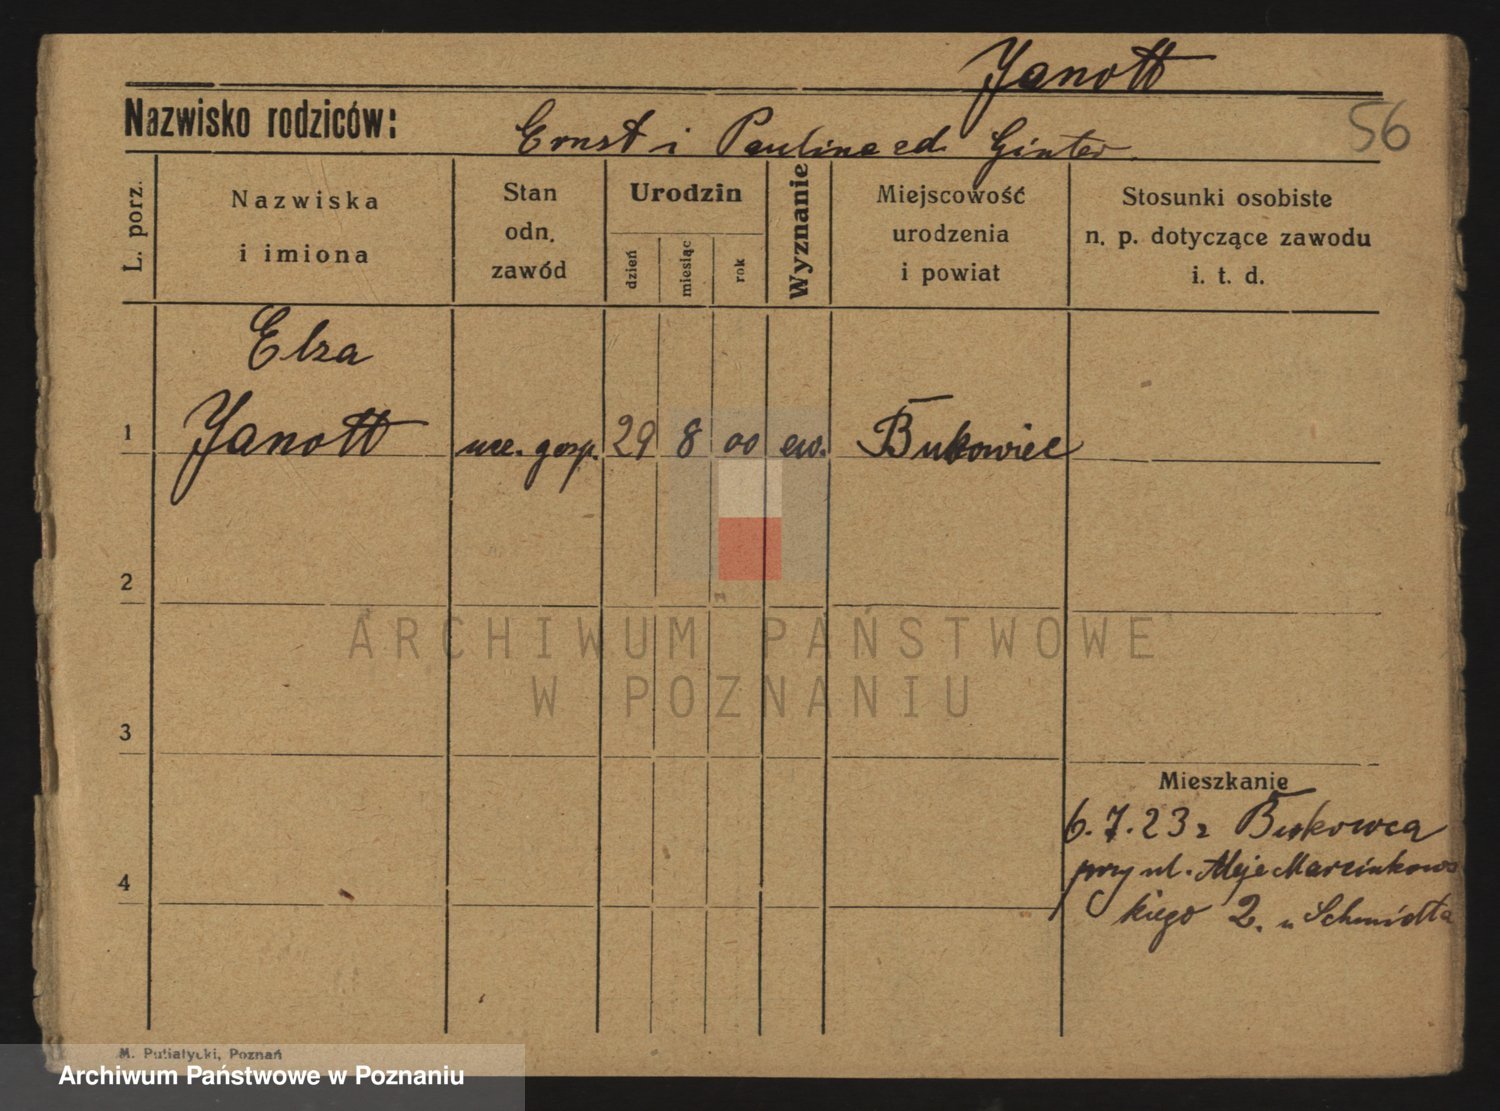 Janott
Nazwisko rodziców:
Ernst i Paulina zd. Ginter.
56
L. porz.
Nazwiska
i imiona
Stan
odn.
zawód
Urodzin
dzień
miesiąc
rok
Wyznanie
Miejscowość
urodzenia
i powiat
Stosunki osobiste
n. p. dotyczące zawodu
i. t. d.
Elza
1 Janott ucz. gosp. 29 8 00 ew. Bukowiec
2
3
4
ARCHIWUM PAŃSTWOWE
W POZNANIU
Mieszkanie
6.7.23 z Bukowca
przy ul. Aleje Marcinkows
kiego 2. u Schmidta
M. Putiatycki, Poznań
Archiwum Państwowe w Poznaniu